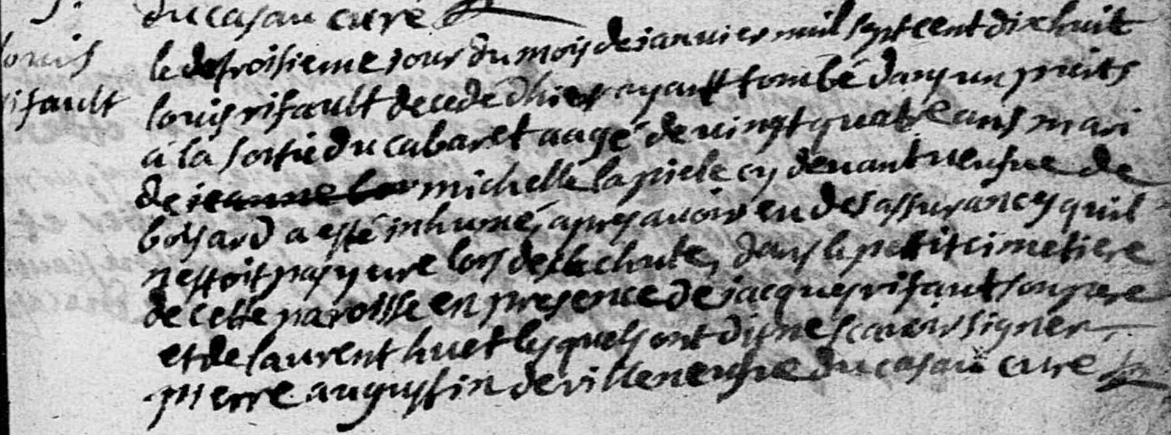 du casau cure
louis
rifault
le troisieme jour du mois de januier mil sept cent dixhuit
louis rifault decede d'hier ayant tombé dans un puits
a la sortie du cabaret aagé de uingt quatre ans mari
de jeanne michelle la piele cy deuant ueufue de
boisard a esté inhumé, apres auoir eu des assurances quil
n'estoit pas yure lors de sa chute, dans le petit cimetiere
de cette paroisse en presence de jacques rifault son pere
et de laurent huet lesquels ont dit ne scauoir signer
pierre augustin de villeneufue du casau cure